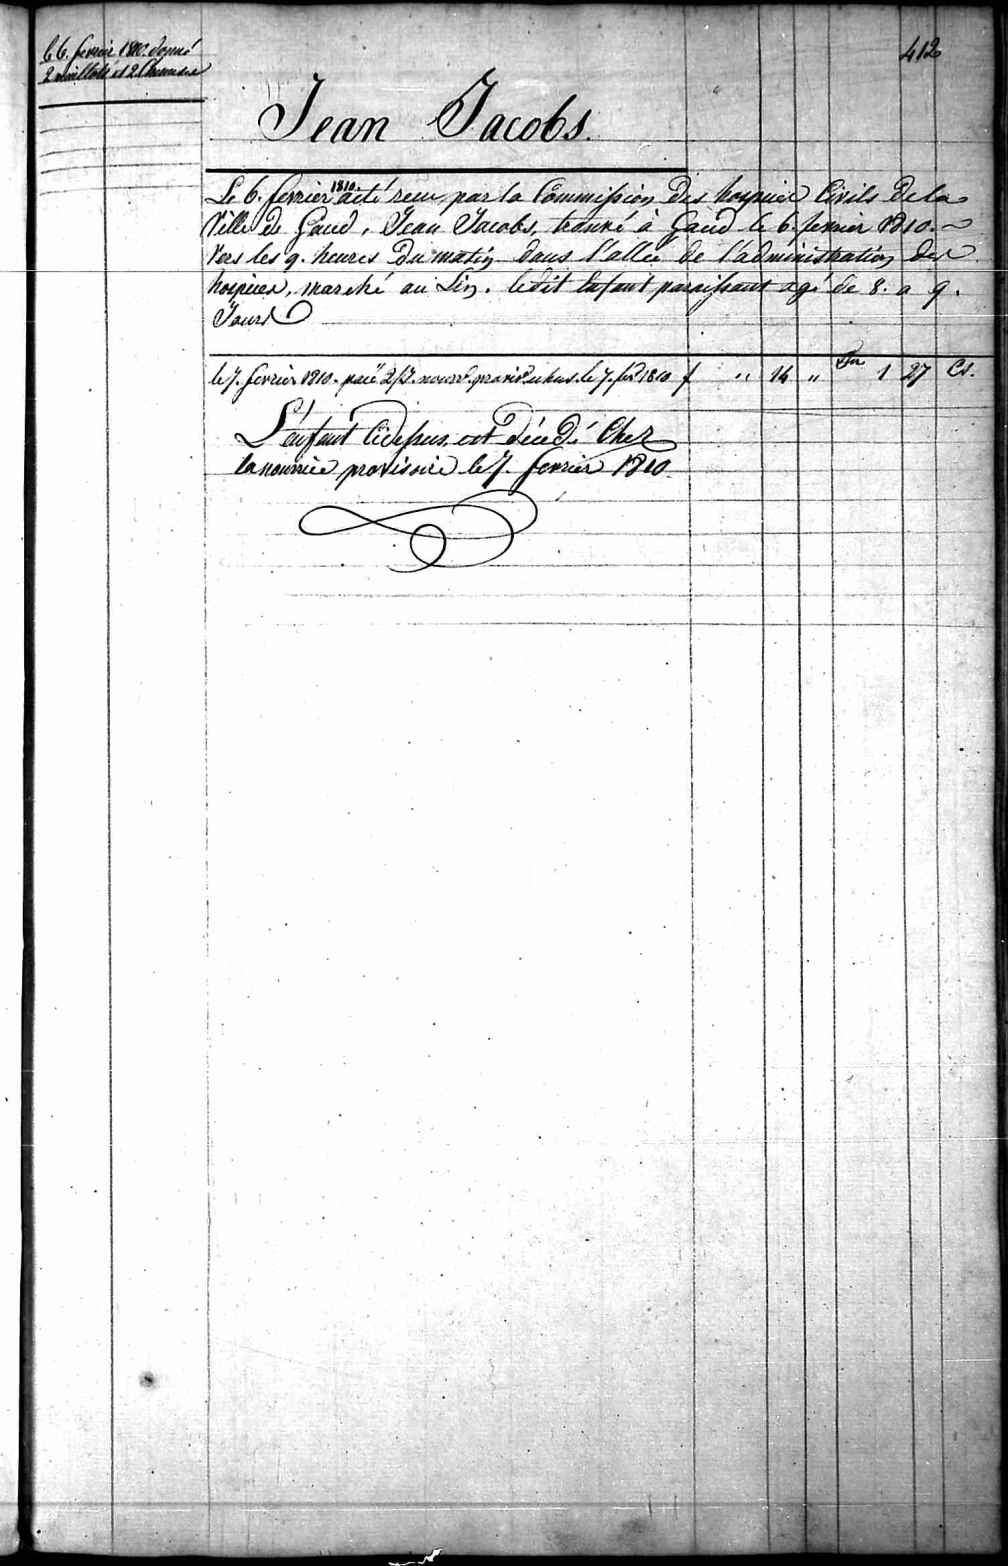 le 6. fevrier 1810. donné
2 maillots et 2 Chemises
412
Jean Jacobs.
Le 6. fevrier 1810. a été recu, par la Commission des hospices Civils de la
Ville de Gand, Jean Jacobs, trouvé à Gand le 6. fevrier 1810. ~
Vers les 9. heures du matin dans l'allée de l'administration des
hospices, marché au Lin. ledit Enfant paraissant agé de 8. a 9.
Jours
le 7. fevrier 1810. paié nourr. provis. le 7. fev. 1810 f " 14 " 1 27 Cs.
L'enfant Cidessus est décedé Chez
la nourrice provisoire le 7. fevrier 1810.